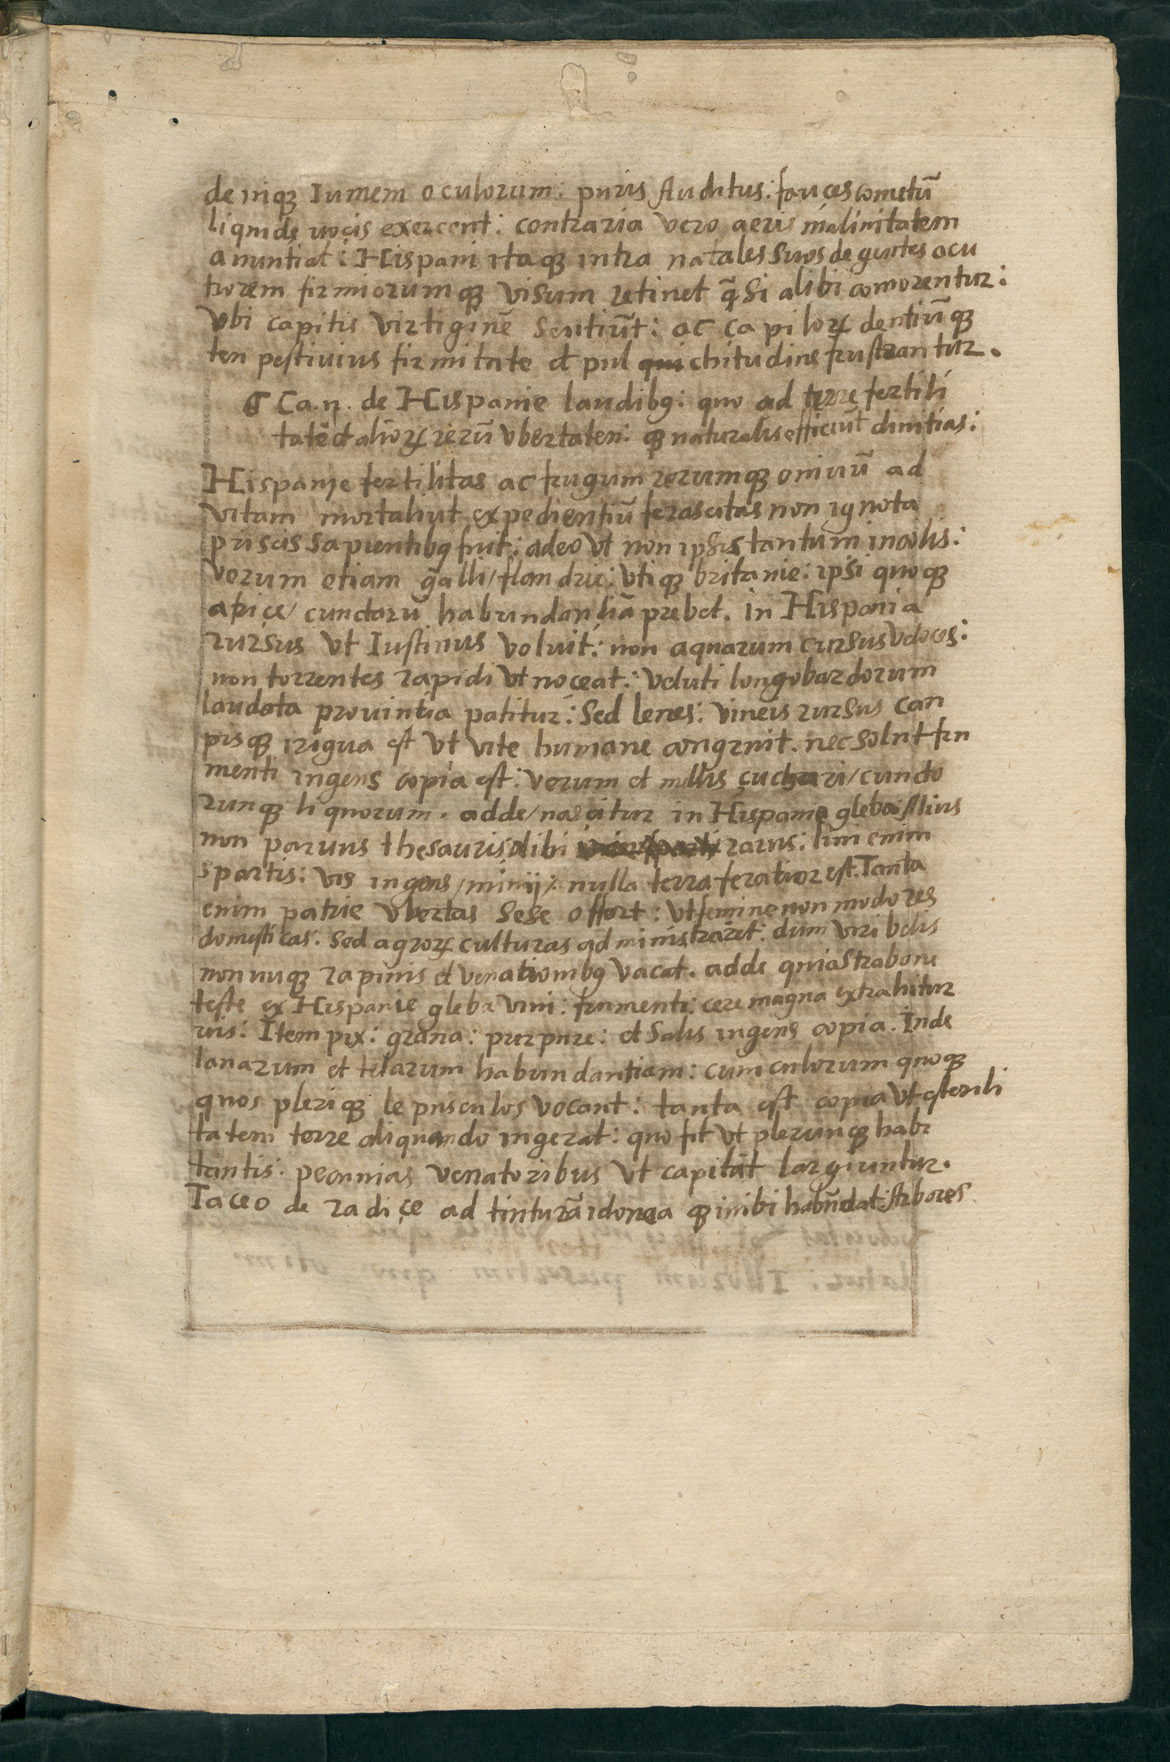 denique lumem oculorum: puris Auditus: fauces cometū
liquide uocis exercent: contraria vero aeris malinitatem
anuntiat: Hispani itaque intra natales suos degentes acu
tiorem firmiorumque visum retinet quā si alibi comorentur:
vbi capitis virtiginē sentiūt: ac capilorꝝ dentiūque
tenpestivius firmitate et pul qui chitudine frustrantur.
¶ Ca. ij. de Hispanie laudibꝫ: quo ad terre fertili
tatē et aliorꝝ rerū vbertaten: que naturalis efficiūt diuitias:
Hispanie fertilitas ac frugum rerumque omiuū ad
vitam mortaliut expedientiū feracitas non ignota
priscis sapientibꝫ fuit: adeo vt non ipsis tantum incolis:
verum etiam galli/flandrie: vtique britanie: ipsi quoque
africe/ cunctarū habundantiā prebet. in Hispania
rursus vt Iustinus voluit: non aquarum cursus veloces:
non torrentes rapidi vt noceat: veluti longobardorum
laudata prouintia patitur: Sed lenes: vineis rursus can
pisque irigua est vt vite humane congruit. nec solut fru
menti ingens copia est: verum et mellis çuchari/cuncto
runque liquorum. adde/nascitur in Hispania gleba filius
non paruus thesauris alibi rarus: lini enim
spartis: vis ingens/minij/ nulla terra feratior est. Tanta
enim patrie vbertas sese offert: vt femine non modo res
domesticas: sed agrorꝝ culturas administraret: dum viri belis
nonnuque rapinis et venationibꝫ vacat. adde quia Strabone
teste ex Hispanie gleba vini: frumenti: cere magna extrahitur
uis: Item pix: grana: purpure: et salis ingens copia. Inde
lanarum et telarum habundantiam: cuniculorum quoque
quos plerique lepusculos vocant: tanta est copia vt esterili
tatem terre aliquando ingerat: quo fit vt plerunque habi
tantis: pecunias venatoribus vt capiāt largiuntur.
Taceo de radiçe ad tinturā idonea que inibi habūdat: Arbores